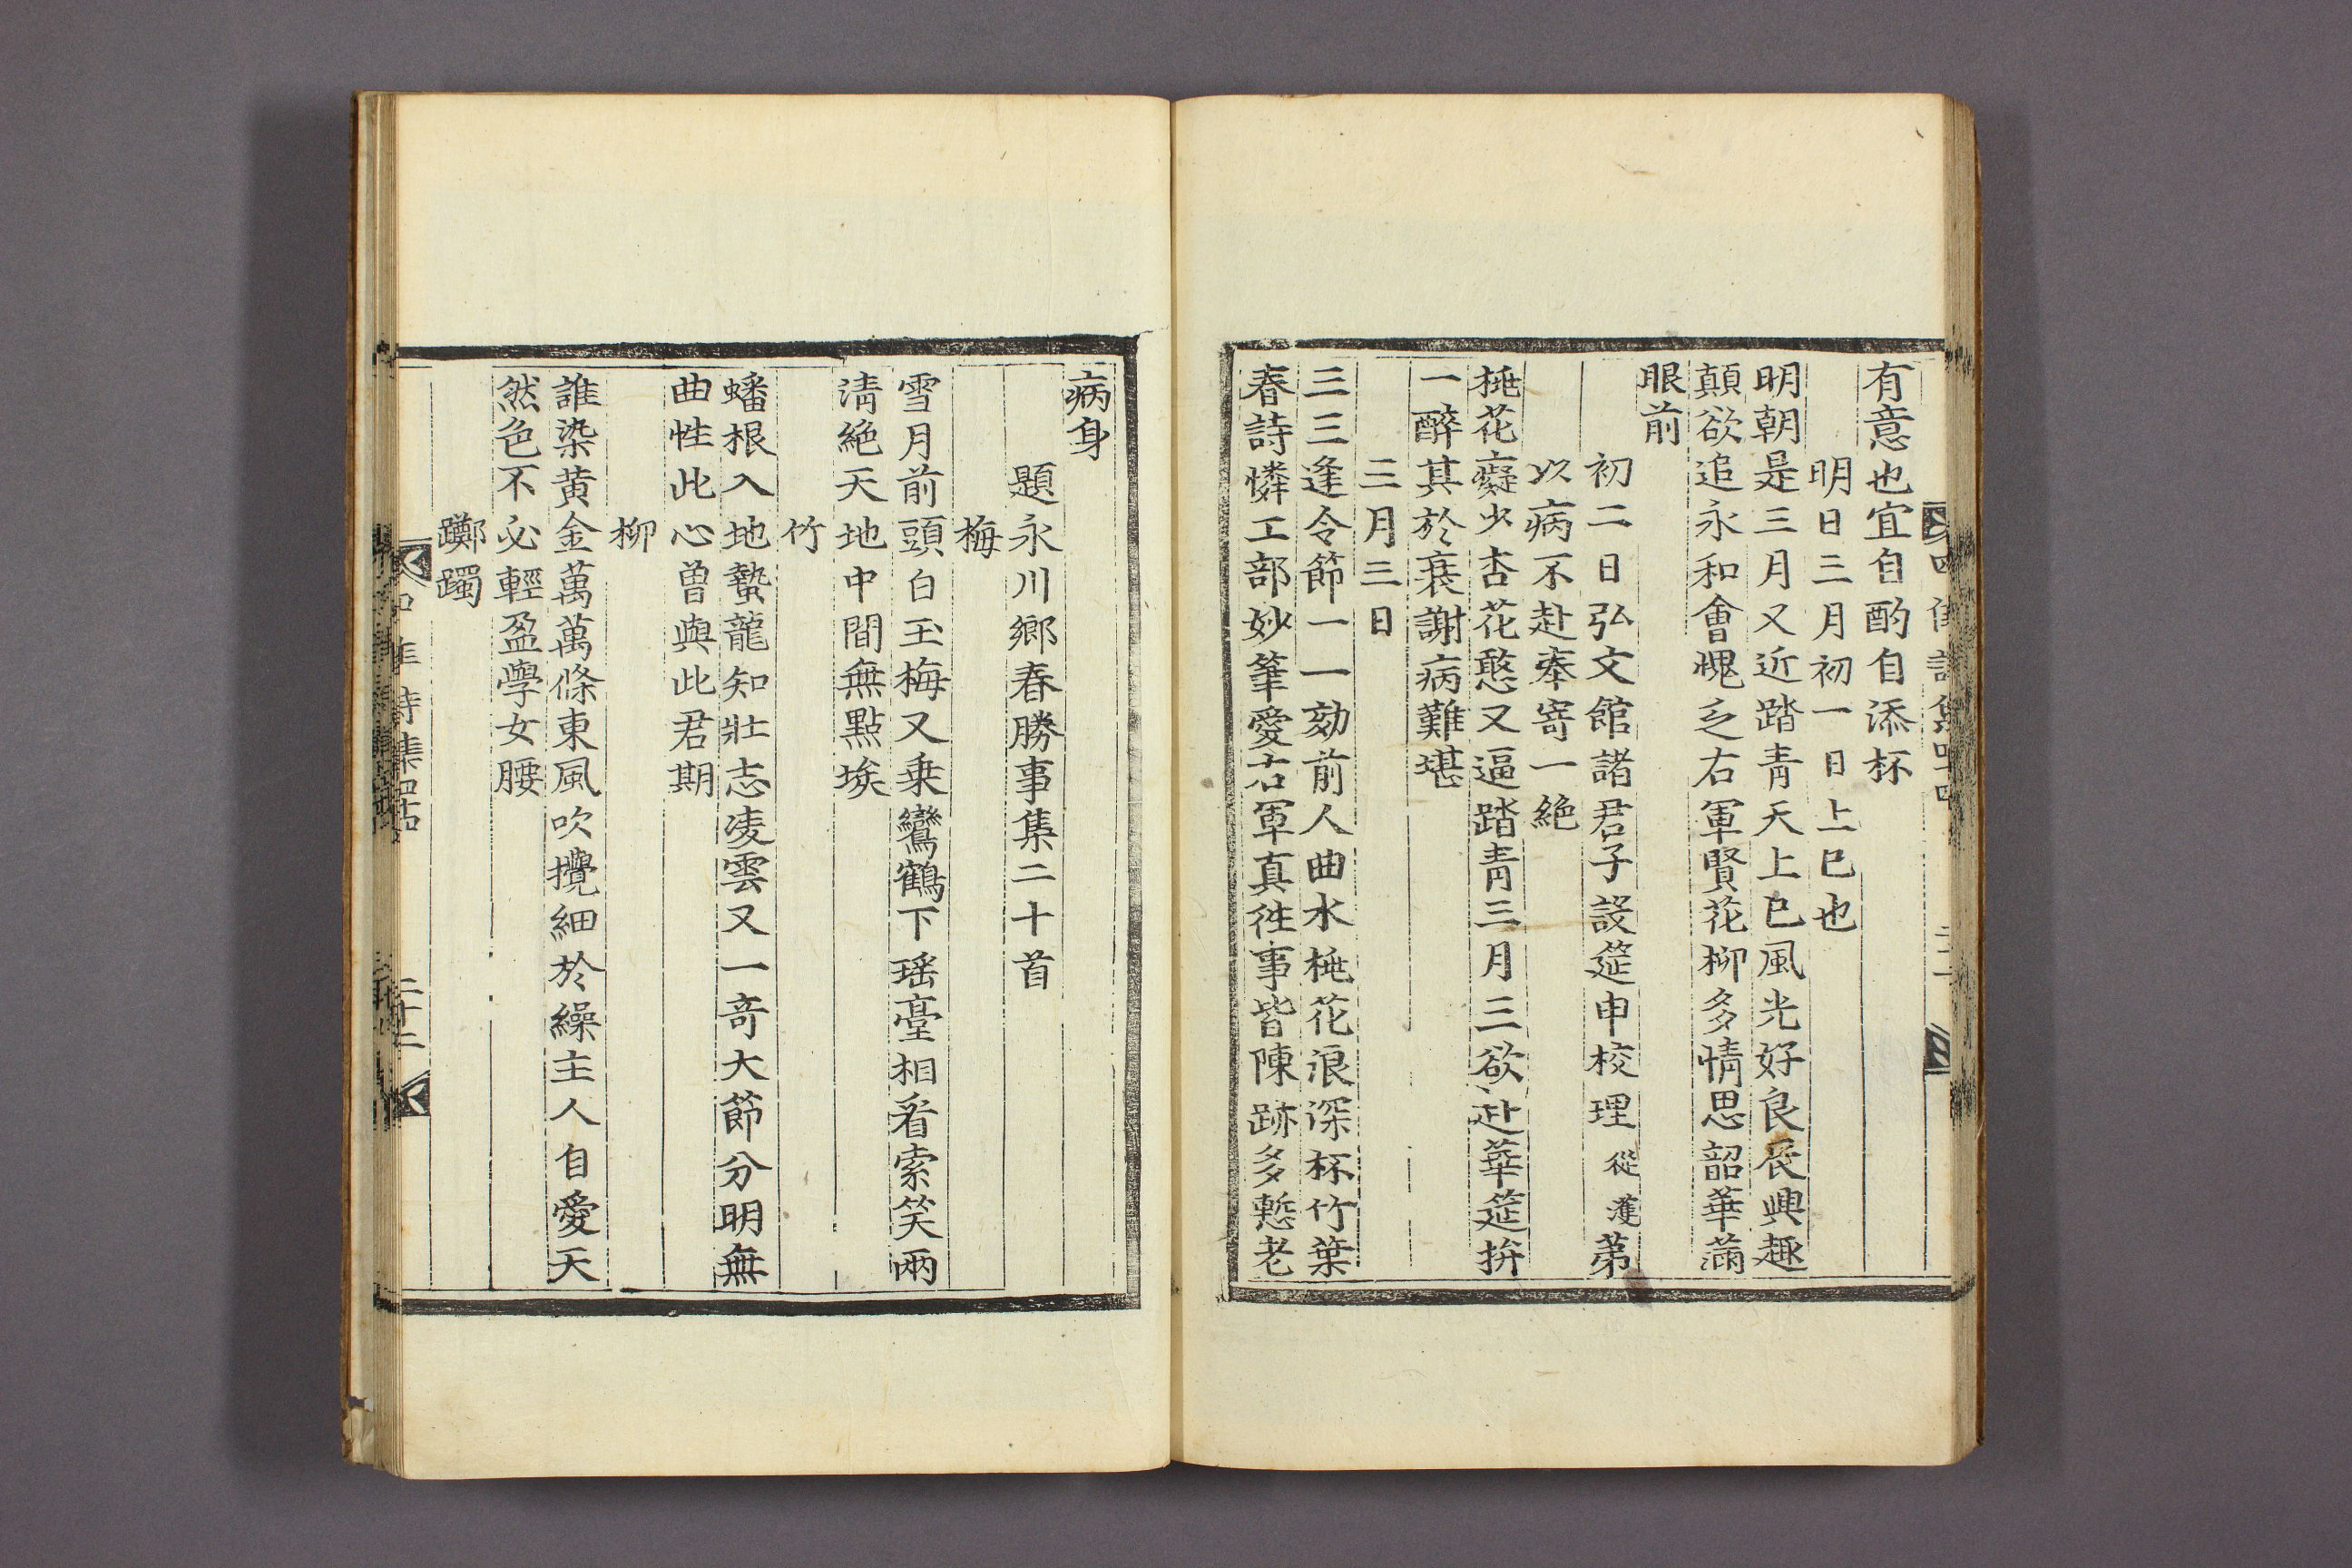 有意也宜自酌自添杯
明日三月初一日上巳也
明朝是三月又近踏青天上巳風光好良辰興趣
顛欲追永和會愧乏右軍賢花柳多情思韶華滿
眼前
初二日弘文館諸君子設筵申校理從濩第
以病不赴奉寄一絶
桃花癡少杏花憨又逼踏青三月三欲赴華筵拚
一醉其於衰謝病難堪
三月三日
三三逢令節一一効前人曲水桃花浪深杯竹葉
春詩憐工部妙筆愛右軍真徃事皆陳跡多慙老
病身
題永川鄉春勝事集二十首
梅
雪月前頭白玉梅又乗鸞鶴下瑶䑓相看索笑兩
清絶天地中間無點埃
竹
蟠根入地蟄龍知壯志凌雲又一竒大節分明無
曲性此心曽與此君期
柳
誰染黄金萬萬條東風吹攪細於繰主人自愛天
然色不必輕盈學女腰
躑躅
四佳詩集 二十二